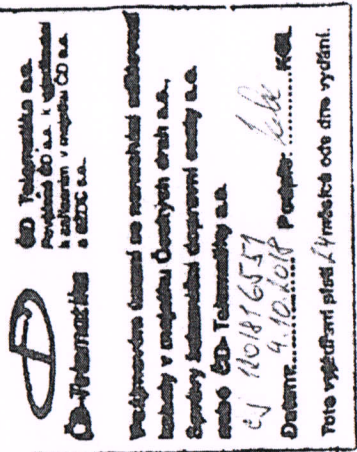 ČD Telematika a.s.
Pověřená ČD a.s. k vyjadřování
k zařízením v majetku ČD a.s.
a SŽDC s.o.
ČD-Telematika
V zájmovém území se nenacházejí
kabely v majetku Českých drah a.s.,
Správy železniční dopravní cesty s.o.
nebo ČD-Telematiky a.s.
čj 1201816551
Datum: 4.10.2018 Podpis:
Toto vyjádření platí 24 měsíců ode dne vydání.